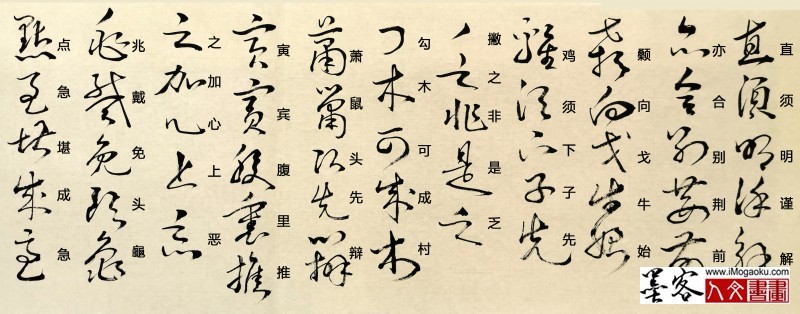 直须明谨解
亦合别荆前
颡向戈牛始
鸡须下子先
撇之非是乏
勾木可成村
萧鼠头先辩
寅宾腹里推
之加心上恶
兆戴免头龜
点急堪成急
www.iMogaoku.com
墨客
人文書畫